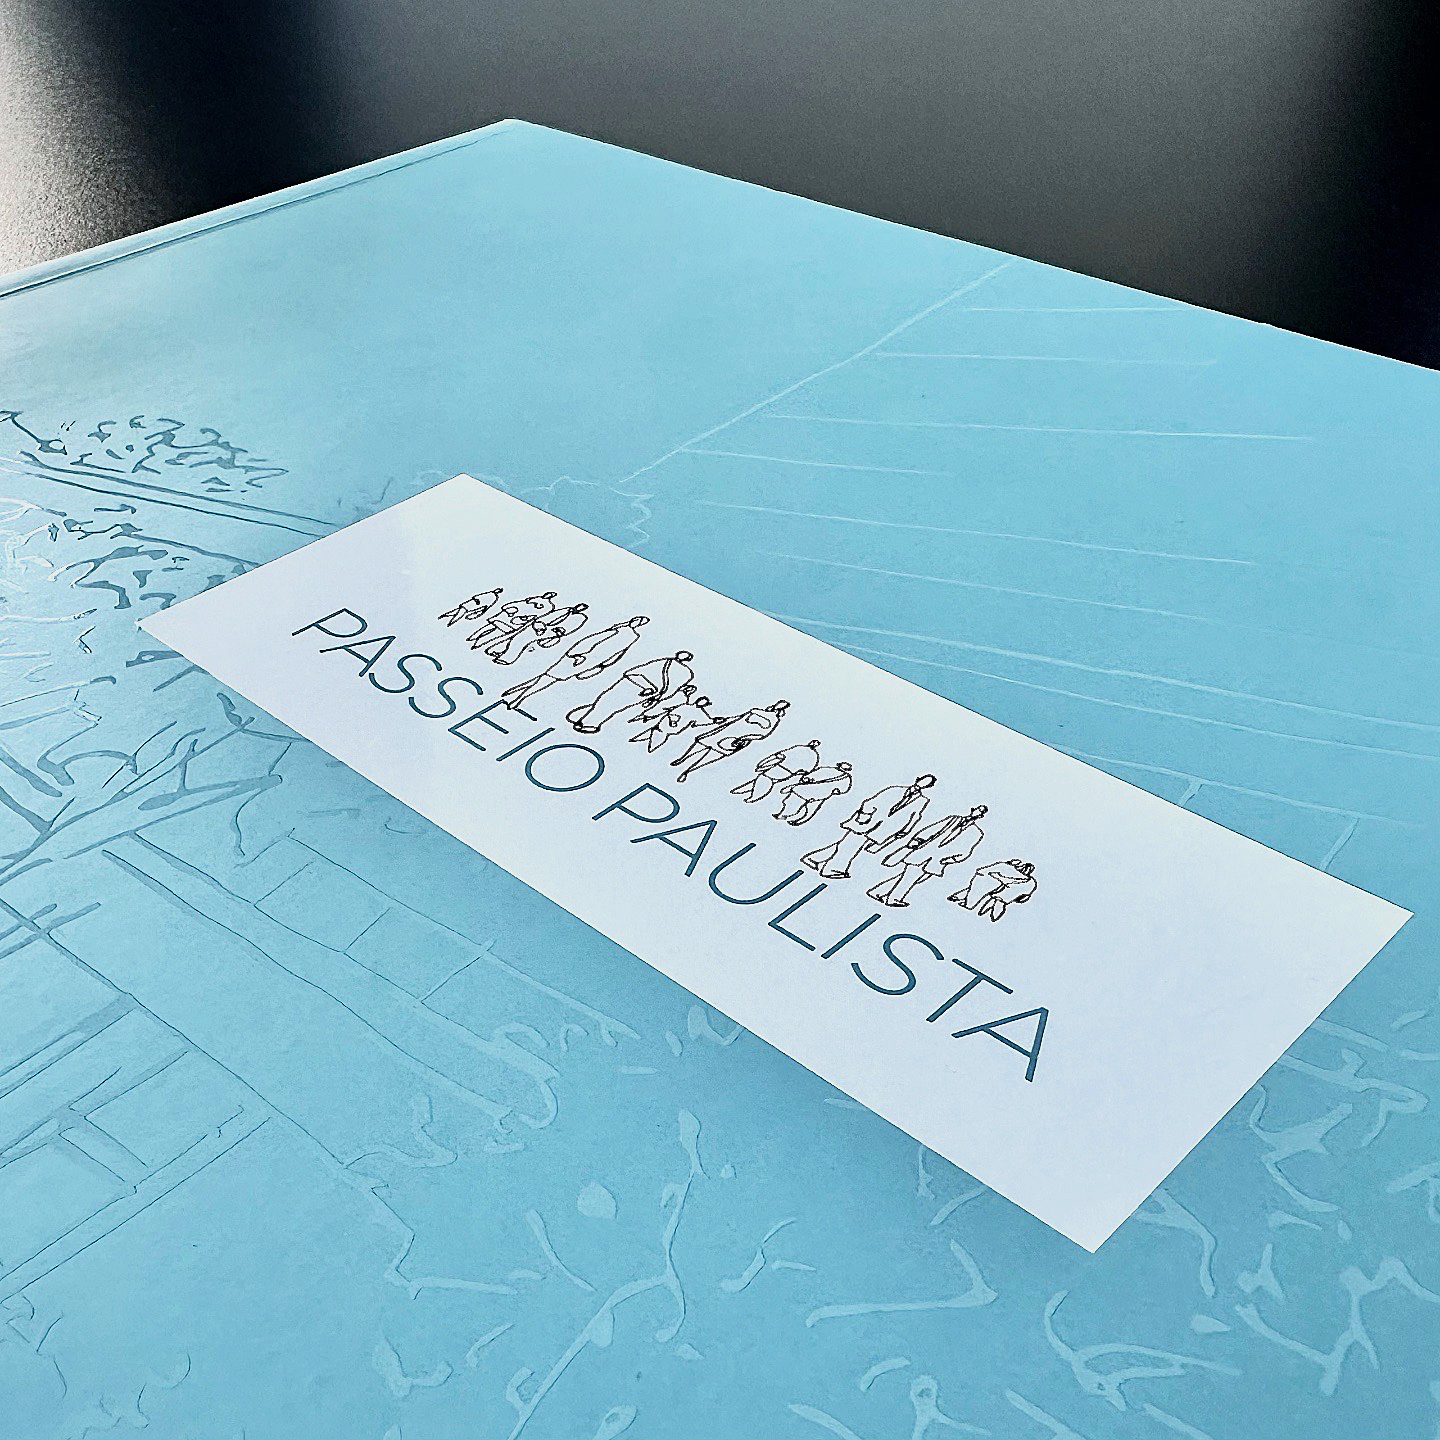 PASSEIO PAULISTA